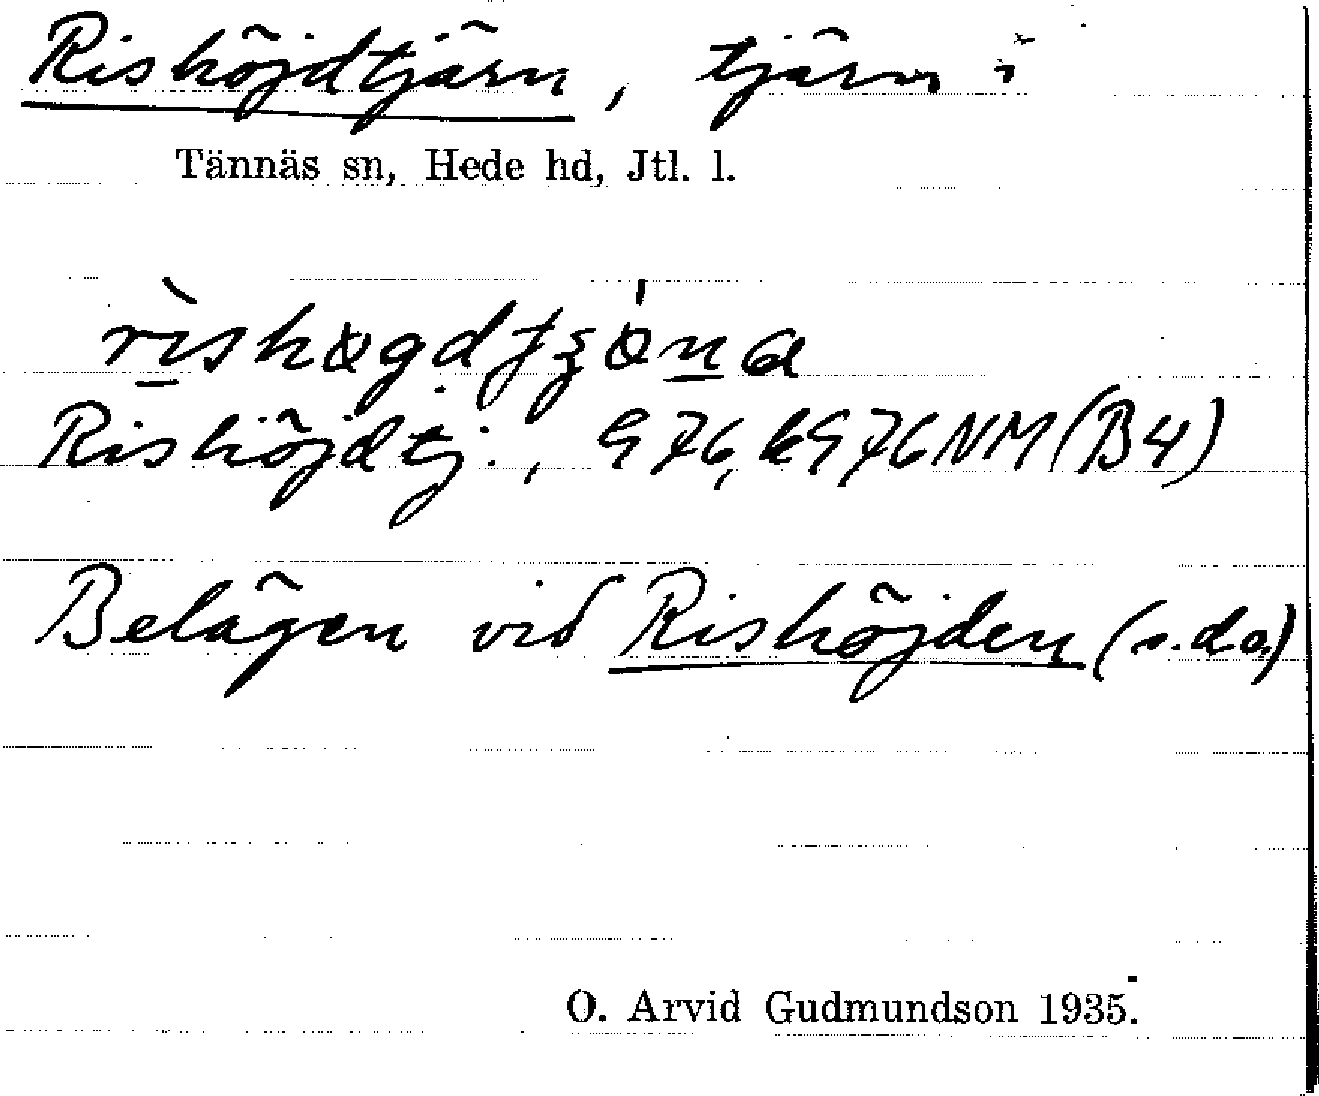 Rishöjdtjärn, tjärn i
Tännäs sn, Hede hd, Jtl. l.
Rishöjdtj., 976, k976NM(B4)
Belägen vid Rishöjden (s.d.o.)
O. Arvid Gudmundson 1935.